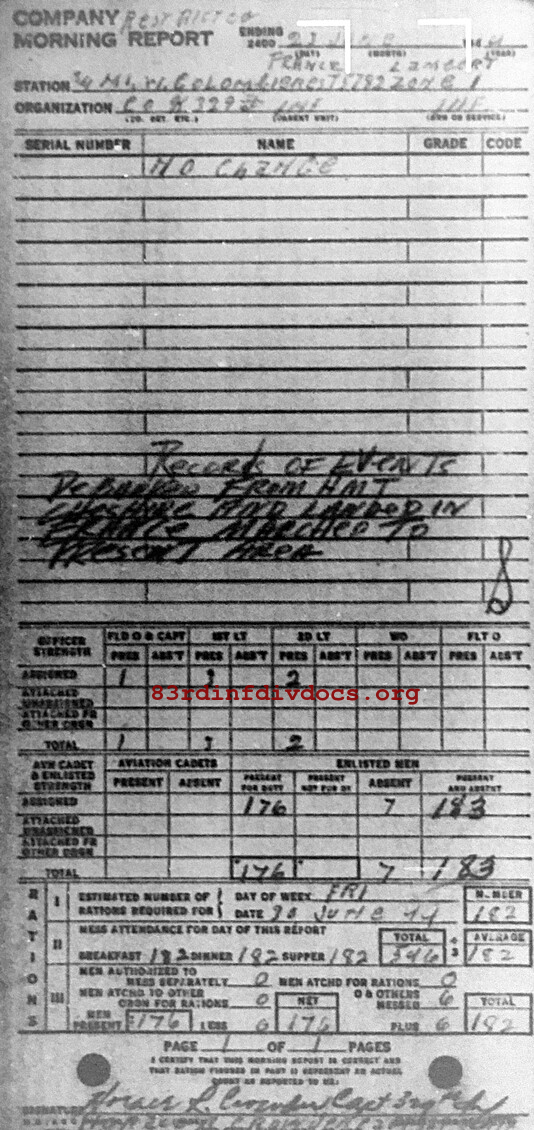 COMPANY RESTRICTED
MORNING REPORT ENDING 2400 23 JUNE
(DAY) (MONTH) (YEAR)
FRANCE LAMBERT
STATION 3/4 MI. W. COLOMBIERES T5782 ZONE 1
ORGANIZATION CO K 329 INF INF
(CO. DET. ETC.) (PARENT UNIT) (ARM OR SERVICE)
SERIAL NUMBER NAME GRADE CODE
NO CHANGE
RECORDS OF EVENTS
DEBARKED FROM HMT
CHESHIRE AND LANDED IN
FRANCE MARCHED TO
PRESENT AREA
OFFICER STRENGTH FLD O & CAPT 1ST LT 2D LT WO FLT O
PRES ABS'T PRES ABS'T PRES ABS'T PRES ABS'T PRES ABS'T
ASSIGNED 1 3 2
83rdinfdivdocs.org
ATTACHED UNASSIGNED
ATTACHED FR OTHER ORGN
TOTAL 1 3 2
AVN CADET & ENLISTED STRENGTH AVIATION CADETS ENLISTED MEN
PRESENT ABSENT PRESENT FOR DUTY PRESENT NOT FOR DY ABSENT PRESENT AND ABSENT
ASSIGNED 176 7 183
ATTACHED UNASSIGNED
ATTACHED FR OTHER ORGN
TOTAL 176 7 183
RATIONS
I ESTIMATED NUMBER OF RATIONS REQUIRED FOR DAY OF WEEK FRI NUMBER
DATE 30 JUNE 44 182
II MESS ATTENDANCE FOR DAY OF THIS REPORT TOTAL ÷ 3 AVERAGE
BREAKFAST 182 DINNER 182 SUPPER 182 546 182
III MEN AUTHORIZED TO MESS SEPARATELY 0 MEN ATCHD FOR RATIONS 0
MEN ATCHD TO OTHER ORGN FOR RATIONS 0 NET O & OTHERS MESSED 6 TOTAL
MEN PRESENT 176 LESS 0 176 PLUS 6 182
PAGE 1 OF 1 PAGES
I CERTIFY THAT THIS MORNING REPORT IS CORRECT AND
THAT RATION FIGURES IN PART II REPRESENT AN ACTUAL
COUNT AS REPORTED TO ME:
SIGNATURE Horace L. Capt 329th Inf